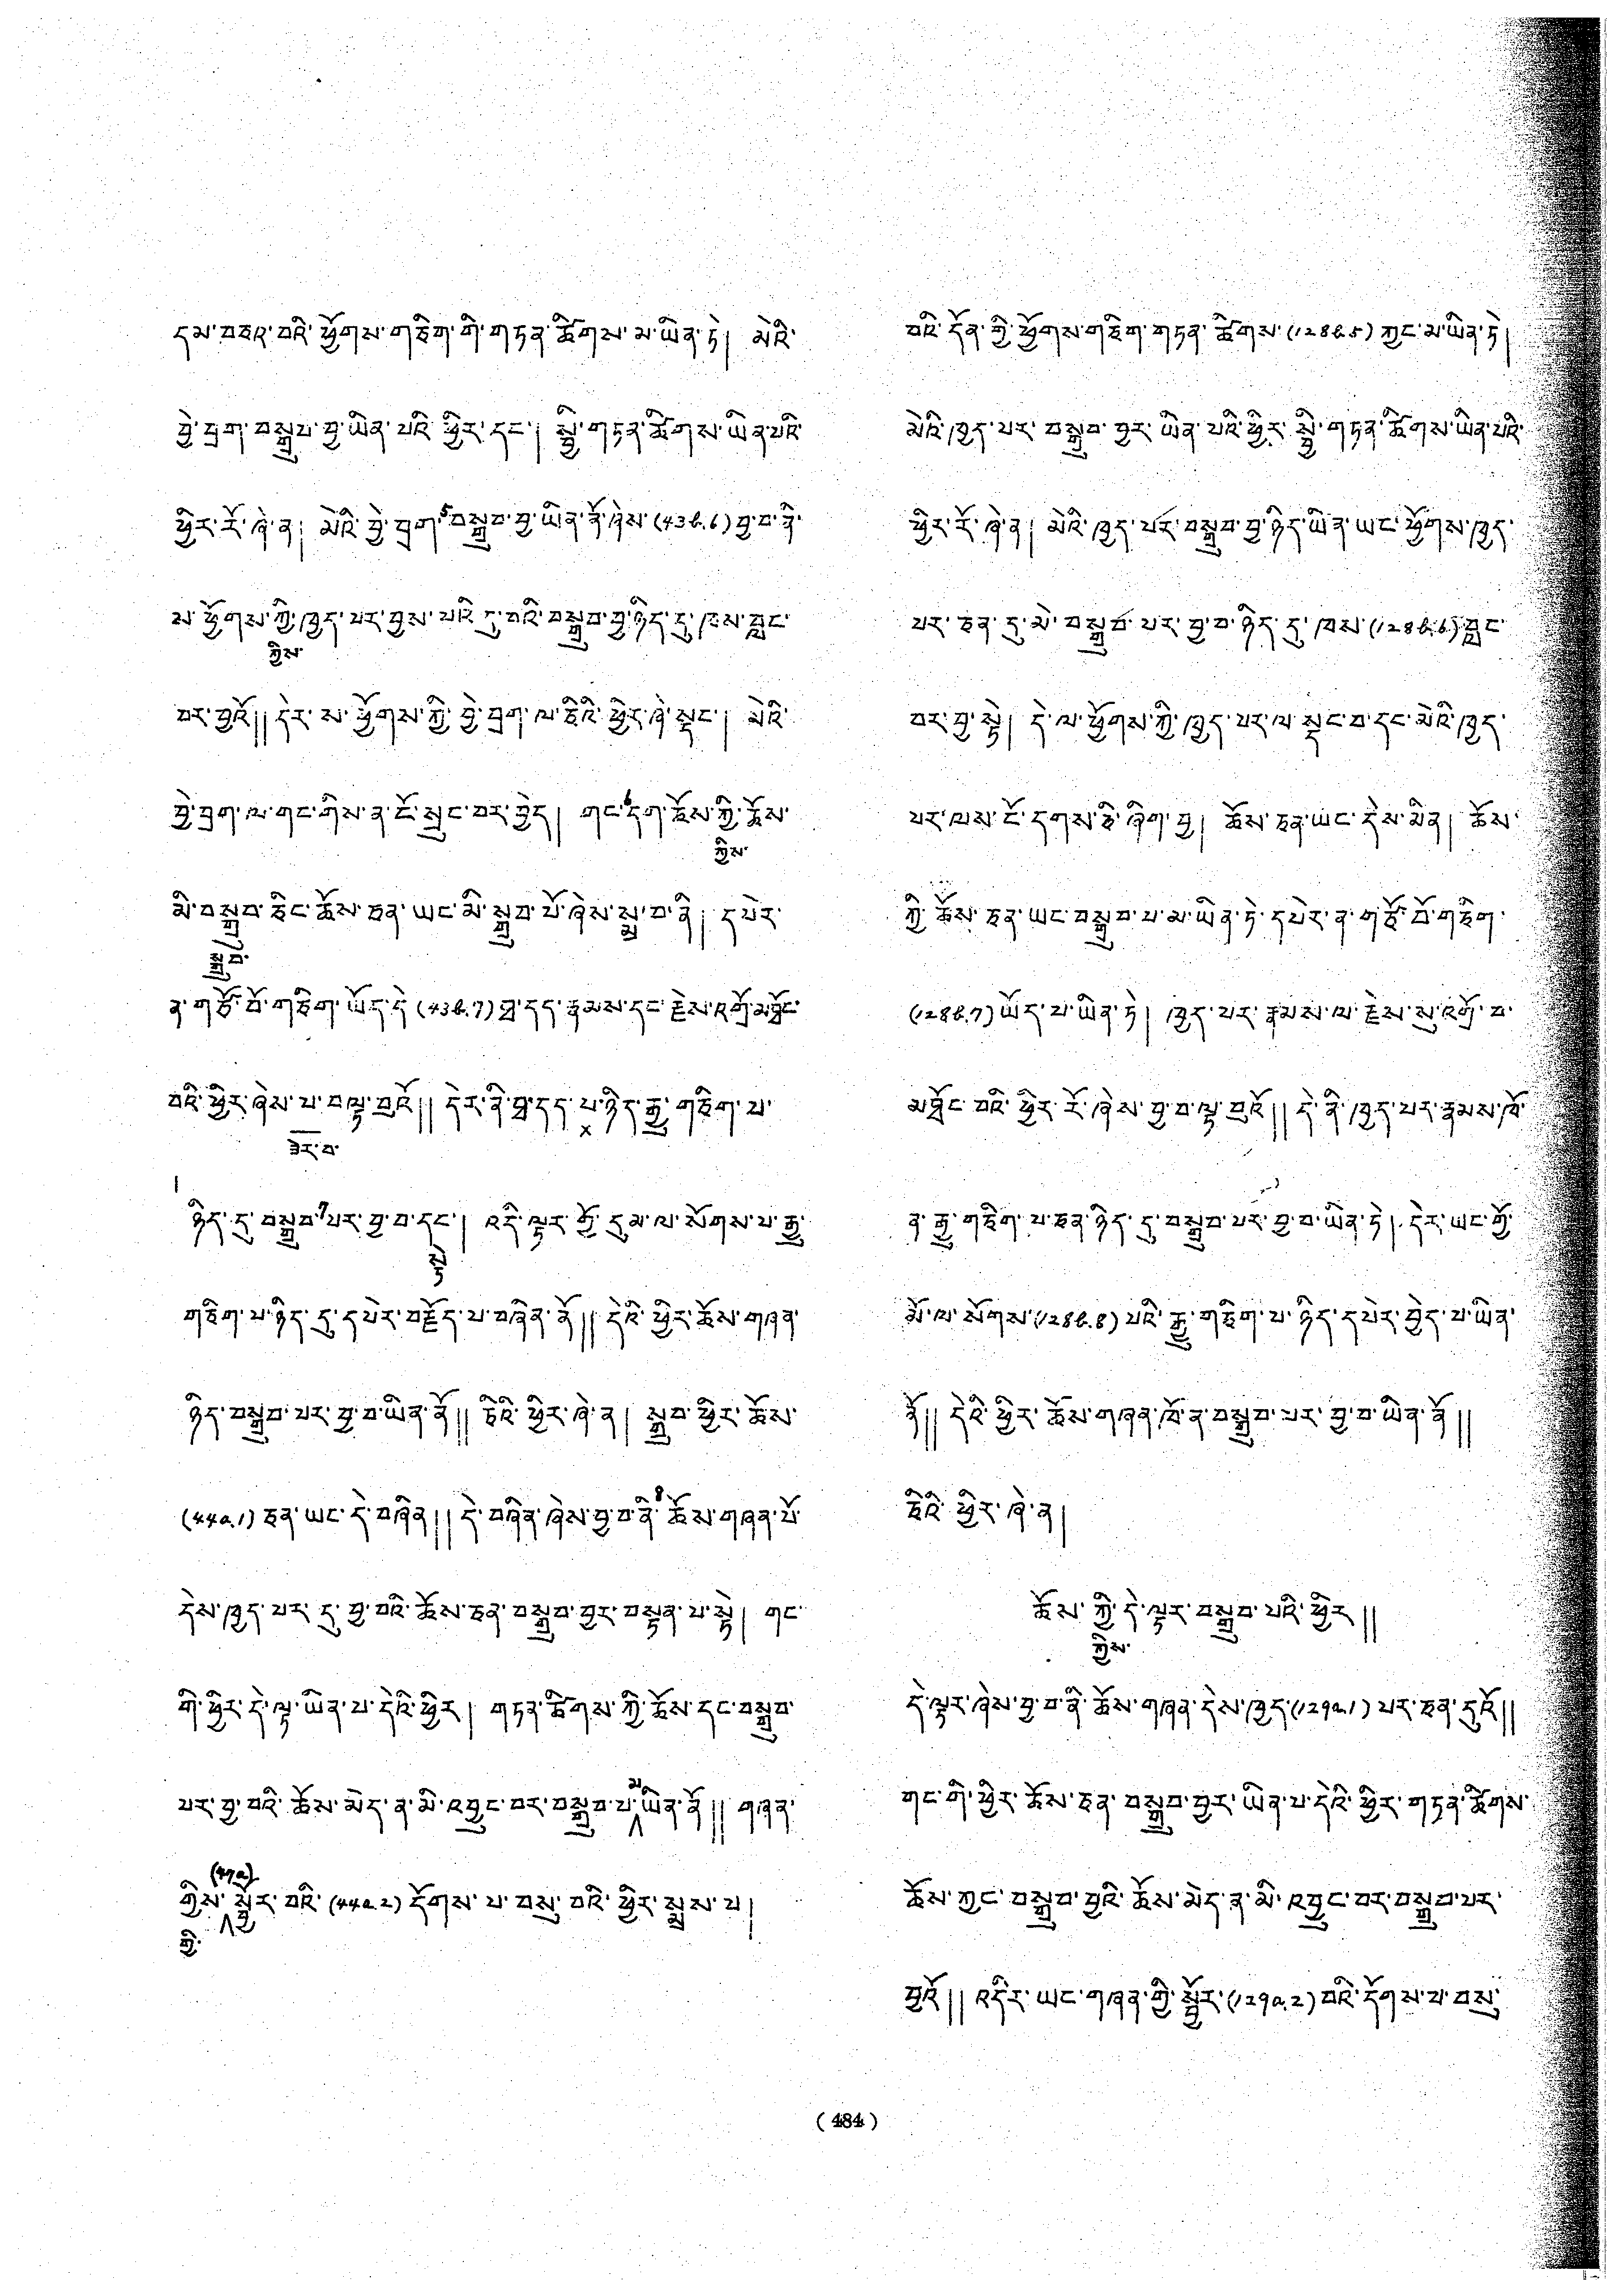 དམ་བཅའ་བའི་ཕྱོགས་གཅིག་གི་གཏན་ཚིགས་མ་ཡིན་ཏེ། མེའི་
བྱེ་བྲག་བསྒྲུབ་བྱ་ཡིན་པའི་ཕྱིར་དང་། སྤྱི་གཏན་ཚིགས་ཡིན་པའི་
ཕྱིར་རོ་ཞེ་ན། མེའི་བྱེ་བྲག་5བསྒྲུབ་བྱ་ཡིན་ནོ་ཞེས་(43b.6)བྱ་བ་ནི་
ས་ཕྱོགས་ཀྱི་ཁྱད་པར་བྱས་པའི་དུ་བའི་བསྒྲུབ་བྱ་ཉིད་དུ་ཁས་བླང་
ཀྱིས་
བར་བྱའོ།། དེར་ས་ཕྱོགས་ཀྱི་བྱེ་བྲག་ལ་ཅིའི་ཕྱིར་ཞེ་སྡང་། མེའི་
བྱེ་བྲག་ལ་གང་གིས་ན་ངོ་སྲུང་བར་བྱེད། གང་6དག་ཆོས་ཀྱི་ཆོས་
ཀྱིས་
མི་བསྒྲུབ་ཅིང་ཆོས་ཅན་ཡང་མི་སྒྲུབ་པོ་ཞེས་སྨྲ་བ་ནི། དཔེར་
སྒྲུབ་
ན་གཙོ་བོ་གཅིག་ཡོད་དེ(43b.7)ཐ་དད་རྣམས་དང་རྗེས་འགྲོ་མཐོང་
བའི་ཕྱིར་ཞེས་པ་བལྟ་བུའོ།། དེར་ནི་ཐ་དད་པ་ཉིད་རྒྱུ་གཅིག་པ་
ཟེར་བ་ x
ཉིད་དུ་བསྒྲུབ་7པར་བྱ་བ་དང་། འདི་ལྟར་གྱོ་དུམ་ལ་སོགས་པ་རྒྱུ་
སྟེ
གཅིག་པ་ཉིད་དུ་དཔེར་བརྗོད་པ་བཞིན་ནོ།། དེའི་ཕྱིར་ཆོས་གཞན་
ཉིད་བསྒྲུབ་པར་བྱ་བ་ཡིན་ནོ།། ཅིའི་ཕྱིར་ཞེ་ན། སྒྲུབ་ཕྱིར་ཆོས་
(44a.1)ཅན་ཡང་དེ་བཞིན།། དེ་བཞིན་ཞེས་བྱ་བ་ནི་8ཆོས་གཞན་པོ་
དེས་ཁྱད་པར་དུ་བྱ་བའི་ཆོས་ཅན་བསྒྲུབ་བྱར་བསྟན་པ་སྟེ། གང་
གི་ཕྱིར་དེ་ལྟ་ཡིན་པ་དེའི་ཕྱིར། གཏན་ཚིགས་ཀྱི་ཆོས་དང་བསྒྲུབ་
པར་བྱ་བའི་ཆོས་མེད་ན་མི་འབྱུང་བར་བསྒྲུབ་པ་མ་ཡིན་ནོ།། གཞན་
(47a)
གྱིས་སྦྱོར་བའི་(44a.2)དོགས་པ་བསུ་བའི་ཕྱིར་སྨྲས་པ།
གྱི་
བའི་དོན་ཀྱི་ཕྱོགས་གཅིག་གཏན་ཚིགས་(128b.5)ཀྱང་མ་ཡིན་ཏེ།
མེའི་ཁྱད་པར་བསྒྲུབ་བྱར་ཡིན་པའི་ཕྱིར་སྤྱི་གཏན་ཚིགས་ཡིན་པའི་
ཕྱིར་རོ་ཞེ་ན། མེའི་ཁྱད་པར་བསྒྲུབ་བྱ་ཉིད་ཡིན་ཡང་ཕྱོགས་ཁྱད་
པར་ཅན་དུ་མེ་བསྒྲུབ་པར་བྱ་བ་ཉིད་དུ་ཁས་(128b.6)བླང་
བར་བྱ་སྟེ། དེ་ལ་ཕྱོགས་ཀྱི་ཁྱད་པར་ལ་སྡང་བ་དང་མེའི་ཁྱད་
པར་ཁས་ངོ་དགས་ཅི་ཞིག་བྱ། ཆོས་ཅན་ཡང་དེས་མིན། ཆོས་
ཀྱི་ཆོས་ཅན་ཡང་བསྒྲུབ་པ་མ་ཡིན་ཏེ་དཔེར་ན་གཙོ་བོ་གཅིག་
(128b.7)ཡོད་པ་ཡིན་ཏེ། ཁྱད་པར་རྣམས་ལ་རྗེས་སུ་འགྲོ་བ་
མཐོང་བའི་ཕྱིར་རོ་ཞེས་བྱ་བ་ལྟ་བུའོ།། དེ་ནི་ཁྱད་པར་རྣམས་ཁོ་
ན་རྒྱུ་གཅིག་པ་ཅན་ཉིད་དུ་བསྒྲུབ་པར་བྱ་བ་ཡིན་ཏེ། དེར་ཡང་གྱོ་
མོ་ལ་སོགས་(128b.8)པའི་རྒྱུ་གཅིག་པ་ཉིད་དཔེར་བྱེད་པ་ཡིན་
ནོ།། དེའི་ཕྱིར་ཆོས་གཞན་ཁོ་ན་བསྒྲུབ་པར་བྱ་བ་ཡིན་ནོ།།
ཅིའི་ཕྱིར་ཞེ་ན།
ཆོས་ཀྱི་དེ་ལྟར་བསྒྲུབ་པའི་ཕྱིར།།
ཀྱིས་
དེ་ལྟར་ཞེས་བྱ་བ་ནི་ཆོས་གཞན་དེས་ཁྱད་(129a.1)པར་ཅན་དུའོ།།
གང་གི་ཕྱིར་ཆོས་ཅན་བསྒྲུབ་བྱར་ཡིན་པ་དེའི་ཕྱིར་གཏན་ཚིགས་
ཆོས་ཀྱང་བསྒྲུབ་བྱའི་ཆོས་མེད་ན་མི་འབྱུང་བར་བསྒྲུབ་པར་
བྱའོ།། འདིར་ཡང་གཞན་གྱི་སྦྱོར་(129a.2)བའི་དོགས་པ་བསུ་
(484)